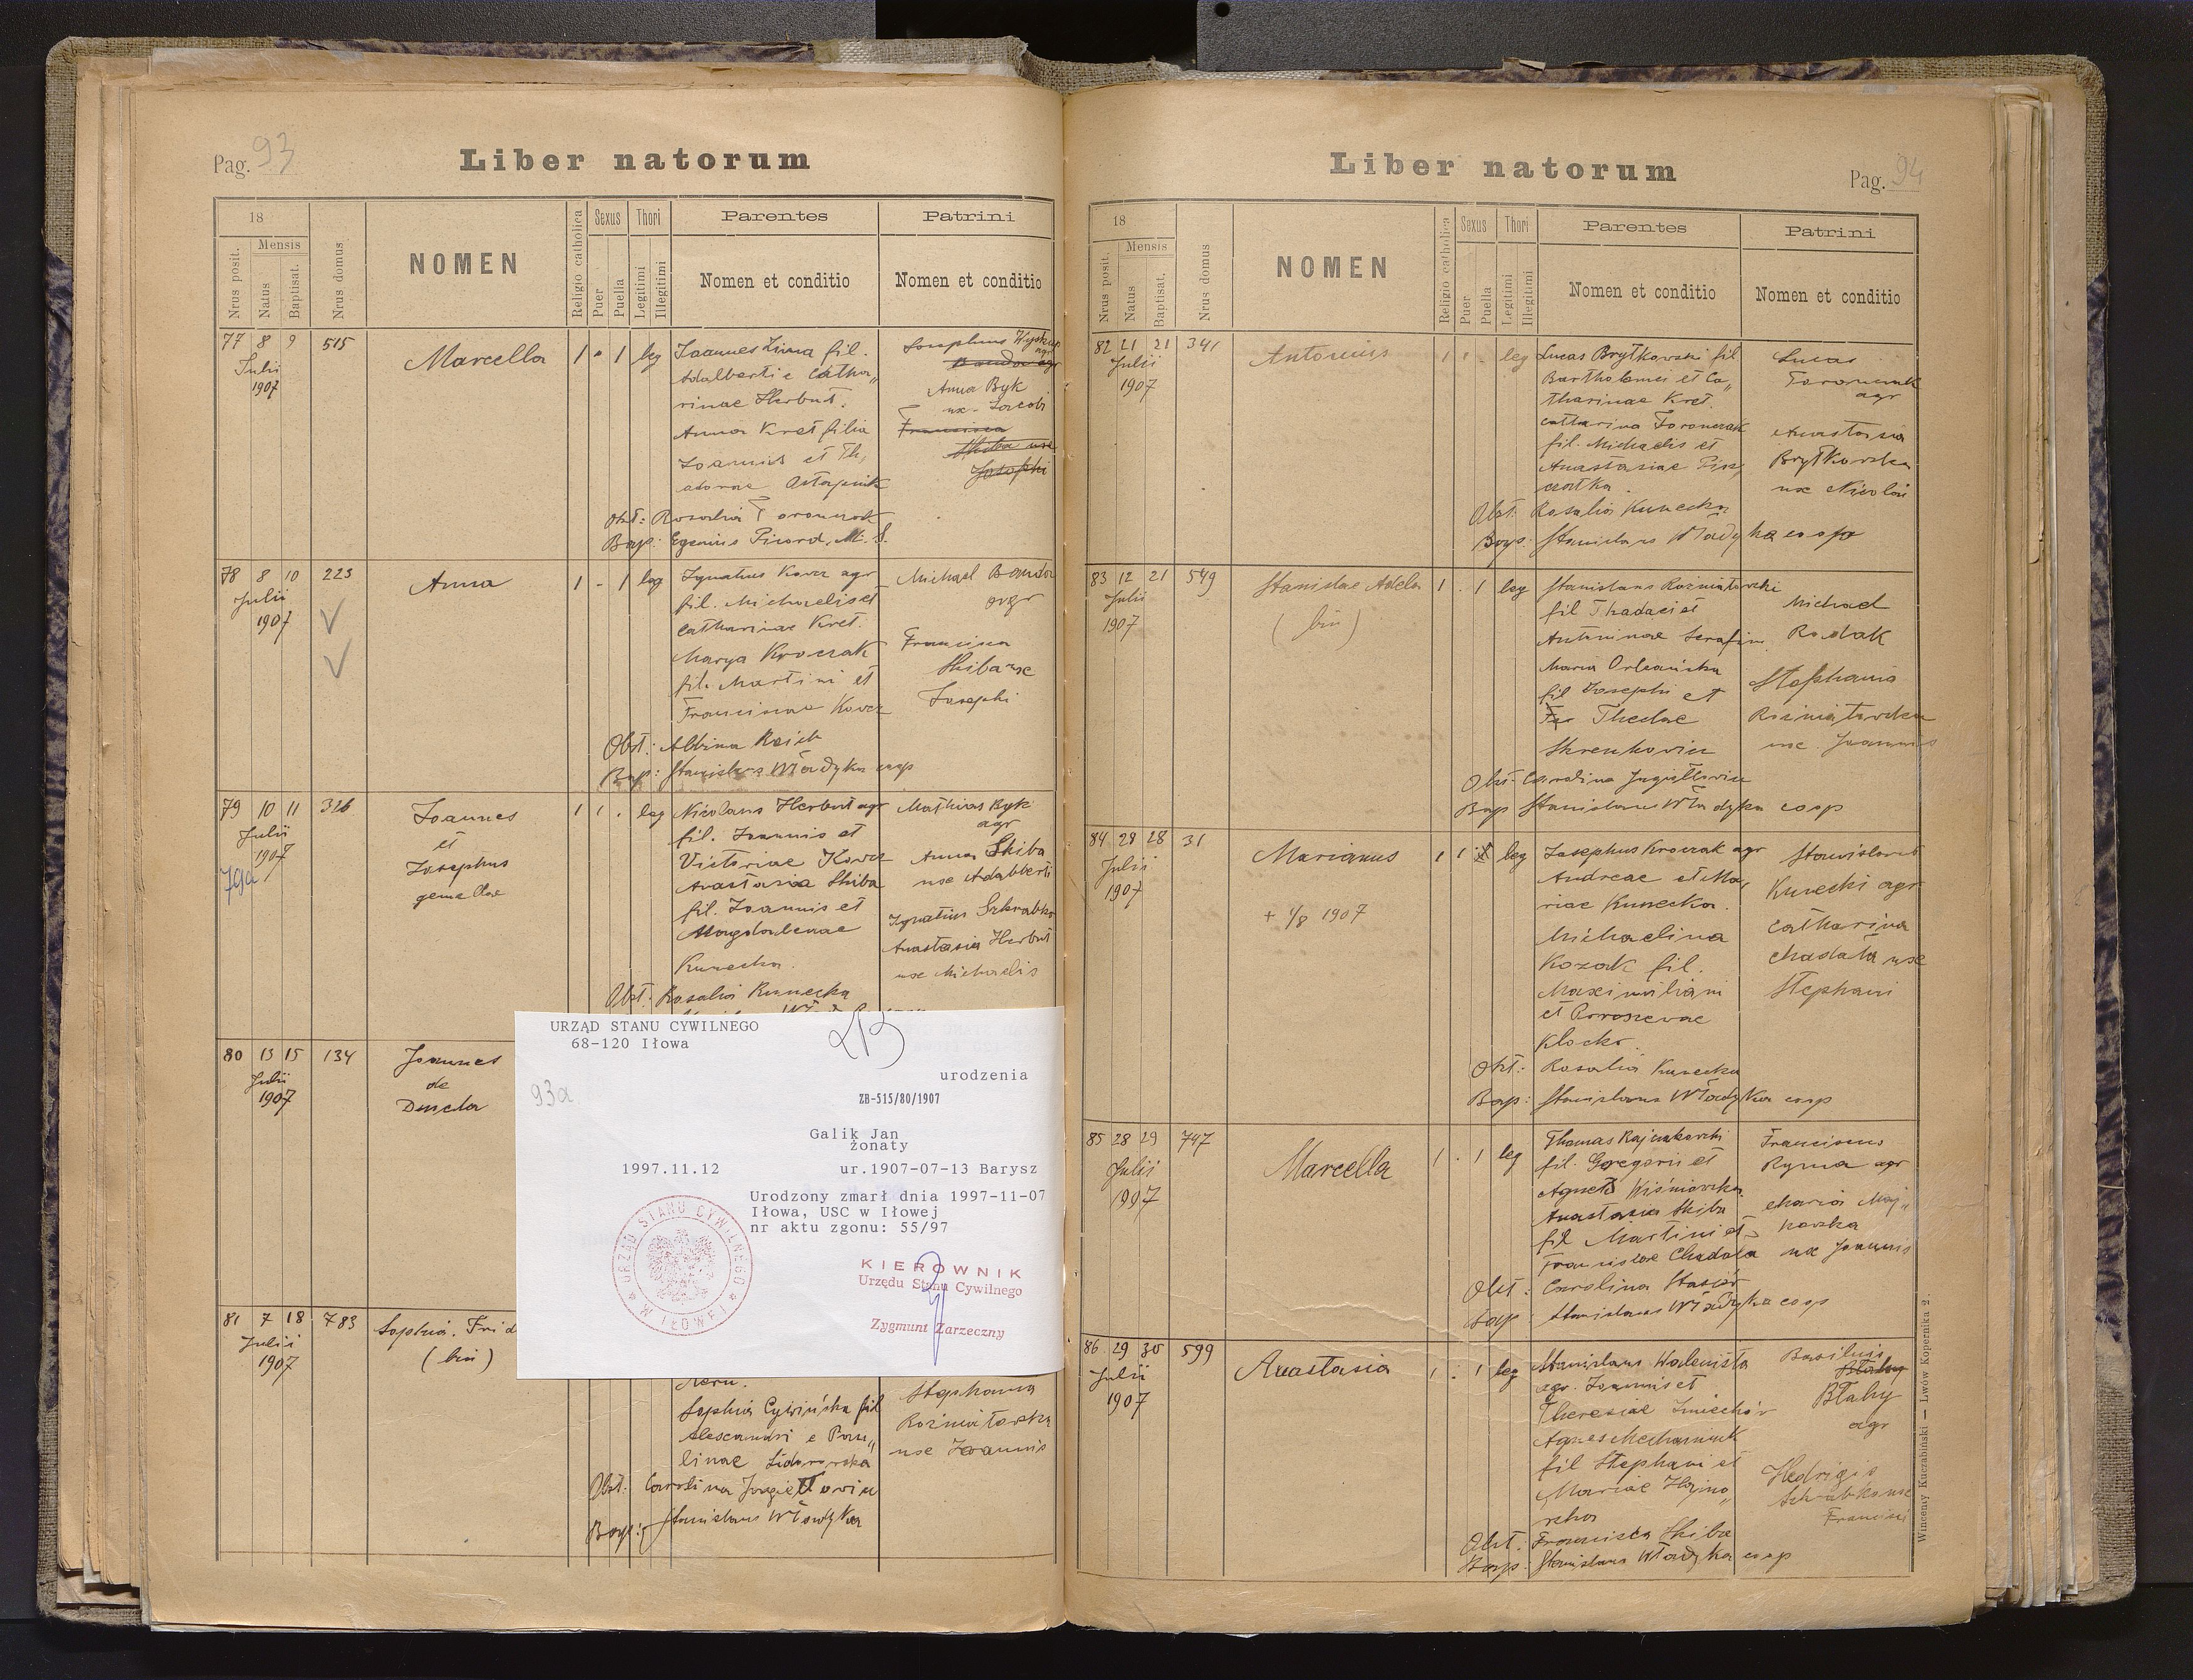 Pag. 93
Liber natorum
18
Nrus posit.
Mensis
Natus
Baptisat.
Nrus domus
NOMEN
Religio catholica
Sexus
Puer
Puella
Thori
Legitimi
Illegitimi
Parentes
Nomen et conditio
Patrini
Nomen et conditio
77 8 9 515
Julii
1907
Marcella
1 - 1 leg
Joannes Zima fil.
Adalberti e Catha„
rinae Herbut.
Anna Kret filia
Joannis et Th,
Josephus
agr
Anna Byk
ux. Jacobi
Francisca
Skiba uxe
Josephi
Obst: Rosalia Toronczak
Bap:
78 8 10 223
Julii
1907
Anna
1 - 1 leg
Ignatius Kover agr
fil. Michaelis et
Catharinae Kret.
Marya Kroczak
fil. Martini et
Franciscae
Michael Bandur
agr
Francisca
Skiba uxe
Josephi
Obst: Albina Reich
Bap: Stanislaus Władyka coop
79 10 11 316
Julii
1907
79a
Joannes
et
Josephus
gemellae
1 1 . leg
Nicolaus Herbut agr
fil. Joannis et
Victoriae
Anastasia Skiba
fil. Joannis et
Magdalenae
Kunecka.
Mathias Byk
agr
Anna Skiba
uxe Adalberti
Ignatius Szkrabko
Anastasia Herbut
uxe Michaelis
Obst: Rosalia Kunecka
80 13 15 134
Julii
1907
Joannes
de
Ducla
URZĄD STANU CYWILNEGO
68-120 Iłowa
93a
urodzenia
ZB-515/80/1907
Galik Jan
żonaty
1997.11.12 ur.1907-07-13 Barysz
Urodzony zmarł dnia 1997-11-07
Iłowa, USC w Iłowej
nr aktu zgonu: 55/97
URZĄD STANU CYWILNEGO
W IŁOWEJ
KIEROWNIK
Urzędu Stanu Cywilnego
Zygmunt Zarzeczny
81 7 18 783
Julii
1907
Sophia. Frid
(bin)
Sophia Cywińska fil
Alexandri e Pau„
linae Sidorowska
Stephania
Rozmiatowska
uxe Joannis
Obst: Carolina Jagiełłowicz
Bap: Stanislaus Władyka
Liber natorum
Pag. 94
18
Nrus posit.
Mensis
Natus
Baptisat.
Nrus domus
NOMEN
Religio catholica
Sexus
Puer
Puella
Thori
Legitimi
Illegitimi
Parentes
Nomen et conditio
Patrini
Nomen et conditio
82 21 21 341
Julii
1907
Antonius
1 1 - leg
Lucas Brytkowski fil
Bartholomei et Ca„
tharinae Kret.
Catharina Toronczak
fil. Michaelis et
Anastasiae
Lucas
Toronczak
agr
Anastasia
Brytkowska
ux Nicolai
Obst: Rosalia Kunecka
Bap: Stanislaus Władyka coop
83 12 21 549
Julii
1907
Stanislae Adela
(bin)
1 . 1 leg
Stanislaus Rozmiatowski
fil Thadaei et
Antoninae Serafin
Maria Orleańska
fil Josephi et
Theclae
Michael
Rudak
Stephania
Rozmiatowska
uxe. Joannis
Obst. Carolina Jagiełłowicz
Bap Stanislaus Władyka coop
84 28 28 31
Julii
1907
Marianus
+ 1/8 1907
1 1 leg
Josephus Kroczak agr
Andreae et Ma,
riae Kunecka.
Michaelina
Kozak fil.
Maximiliani
et
Klocko.
Stanislaus
Kunecki agr
Catharina
Chadała uxe
Stephani
Obst: Rosalia Kunecka
Bap: Stanislaus Władyka coop
85 28 29 747
Julii
1907
Marcella
1 . 1 leg
Thomas
fil. Gregorii et
Agnetis Wiśniowska
Anastasia Skiba
fil Martini et
Franciscae Chadała
Franciscus
Ryma agr
Maria Maj„
kowska
ux Joannis
Obst: Carolina
Bap: Stanislaus Władyka coop
86 29 30 599
Julii
1907
Anastasia
1 . 1 leg
Stanislaus
agr. Joannis et
Theresiae
Agnes
fil Stephani et
Mariae
Basilius
Błahy
agr
Hedvigis
Francisci
Obst: Francisca Skiba
Bap: Stanislaus Władyka coop
Wincenty Kuczabiński — Lwów Kopernika 2.